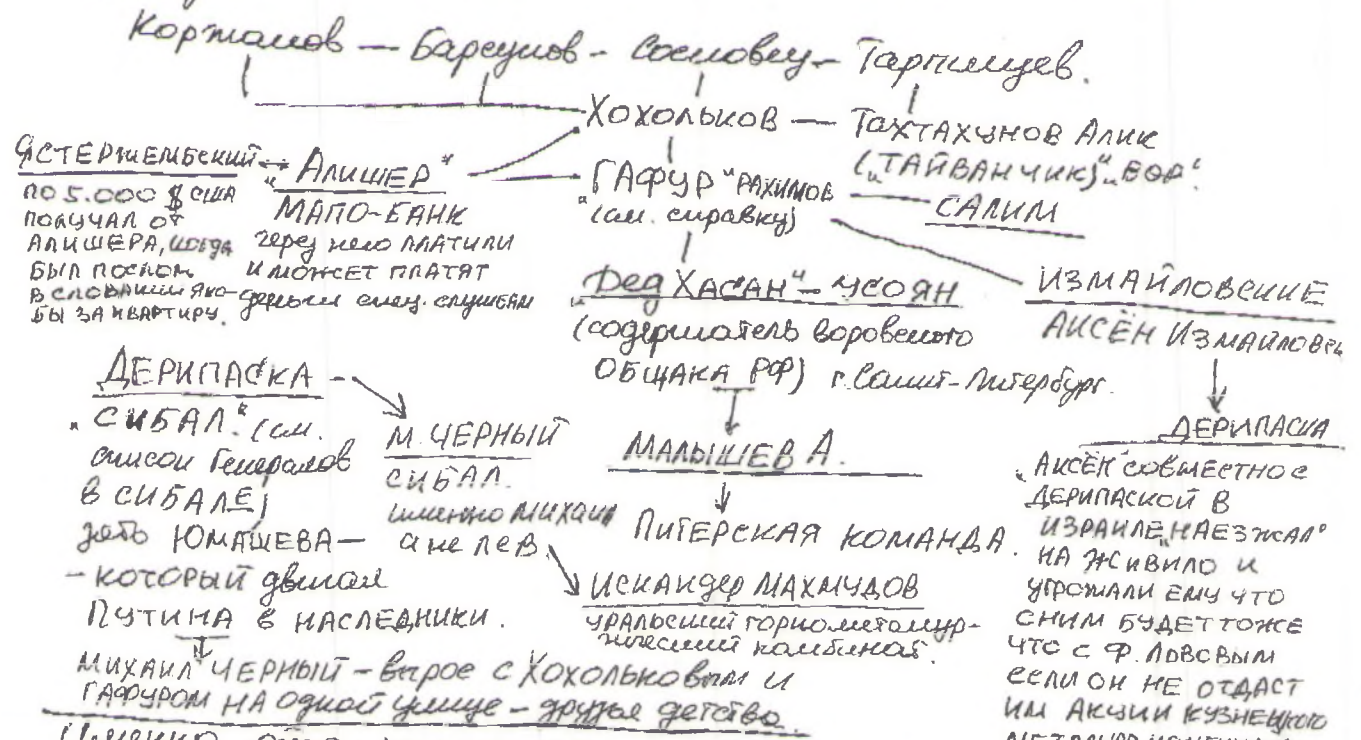 Коржаков — Барсуков - Сосковец - Тарпищев.
Хохольков — Тахтахунов Алик
("Тайванчик)" "вор".
Ястержембский
по 5.000 $ США
получал от
Алишера, когда
был послом
в Словакии яко-
бы за квартиру.
"Алишер"
МАПО-БАНК
через него платили
и может платят
деньги спец. службам
"Гафур" Рахимов
(см. справку)
САЛИМ
"Дед Хасан" - Усоян
(содержатель воровского
общака РФ) г. Санкт-Питербург.
ИЗМАЙЛОВСКИЕ
АКСЁН ИЗМАЙЛОВСК
ДЕРИПАСКА
"СИБАЛ" (см.
список Генералов
в СИБАЛЕ)
зять ЮМАШЕВА —
- который двигал
Путина в наследники.
М. ЧЕРНЫЙ
СИБАЛ.
именно Михаил
а не Лев.
МАЛЫШЕВ А.
ПИТЕРСКАЯ КОМАНДА.
Искандер МАХМУДОВ
уральский горнометалур-
гический комбинат.
ДЕРИПАСКА
"Аксён" совместно с
Дерипаской в
Израиле "наезжал"
на Живило и
угрожали ему что
с ним будет тоже
что с Ф. Львовым
если он не отдаст
им акции Кузнецкого
Михаил ЧЕРНЫЙ - вырос с Хохольковым и
Гафуром на одной улице - друзья детства.